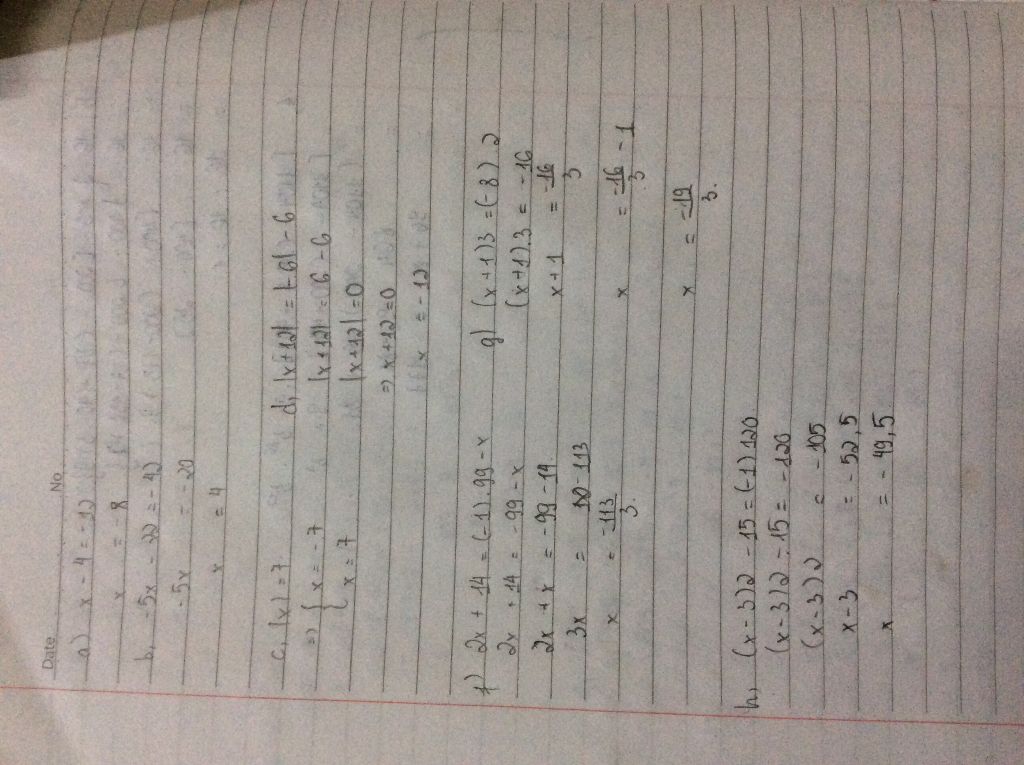 Date No
a) x - 4 = -12
x = -8
b, -5x - 22 = -42
-5x = -20
x = 4
c, |x| = 7
=> { x = -7
{ x = 7
d, |x+12| = |-6| - 6
|x+12| = 6 - 6
|x+12| = 0
=> x+12 = 0
x = -12
f) 2x + 14 = (-1).99 - x
2x + 14 = -99 - x
2x + x = -99 - 14
3x = -113
x = -113/3
g) (x+1)3 = (-8)2
(x+1).3 = -16
x+1 = -16/3
x = -16/3 - 1
x = -19/3
h, (x-3)2 - 15 = (-1)120
(x-3)2 - 15 = -120
(x-3)2 = -105
x-3 = -52,5
x = -49,5